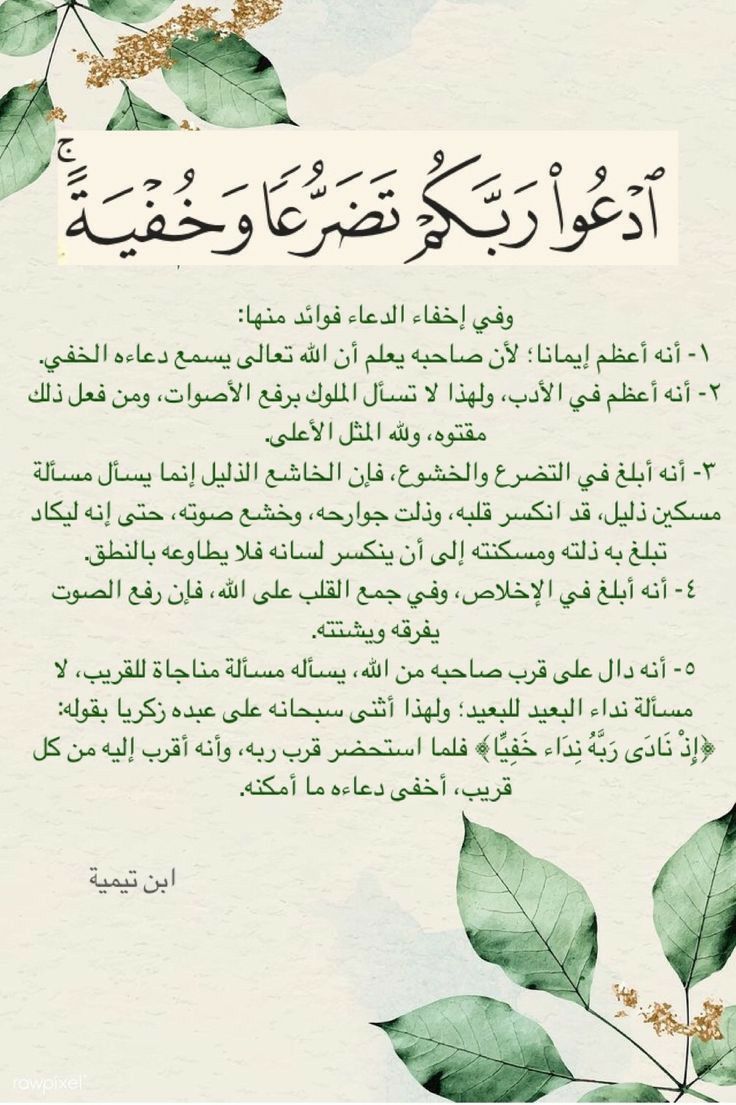 ٱدْعُوا۟ رَبَّكُمْ تَضَرُّعًا وَخُفْيَةً ۚ
وفي إخفاء الدعاء فوائد منها:
١- أنه أعظم إيمانا؛ لأن صاحبه يعلم أن الله تعالى يسمع دعاءه الخفي.
٢- أنه أعظم في الأدب، ولهذا لا تسأل الملوك برفع الأصوات، ومن فعل ذلك
مقتوه، ولله المثل الأعلى.
٣- أنه أبلغ في التضرع والخشوع، فإن الخاشع الذليل إنما يسأل مسألة
مسكين ذليل، قد انكسر قلبه، وذلت جوارحه، وخشع صوته، حتى إنه ليكاد
تبلغ به ذلته ومسكنته إلى أن ينكسر لسانه فلا يطاوعه بالنطق.
٤- أنه أبلغ في الإخلاص، وفي جمع القلب على الله، فإن رفع الصوت
يفرقه ويشتته.
٥- أنه دال على قرب صاحبه من الله، يسأله مسألة مناجاة للقريب، لا
مسألة نداء البعيد للبعيد؛ ولهذا أثنى سبحانه على عبده زكريا بقوله:
﴿إِذْ نَادَى رَبَّهُ نِدَاء خَفِيًّا﴾ فلما استحضر قرب ربه، وأنه أقرب إليه من كل
قريب، أخفى دعاءه ما أمكنه.
ابن تيمية
rawpixel